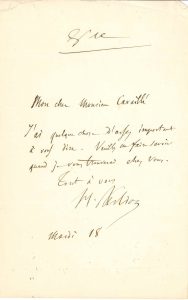 Mon cher Monsieur Cavaillé
J'ai quelque chose d'assez important
à vous dire. Veuillez me faire savoir
quand je vous trouverai chez vous.
Tout à vous
H. Berlioz
Mardi 18